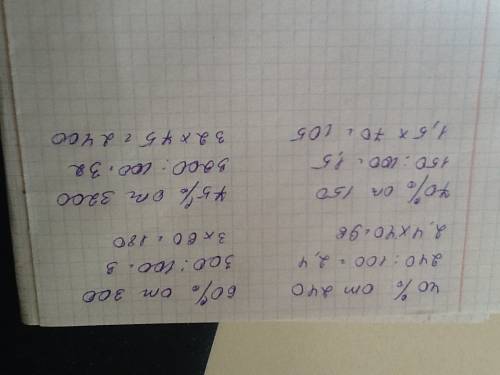 40% от 240
240 : 100 = 2,4
2,4 x 40 = 96
70% от 150
150 : 100 = 1,5
1,5 x 70 = 105
60% от 300
300 : 100 = 3
3 x 60 = 180
75% от 3200
3200 : 100 = 32
32 x 75 = 2400